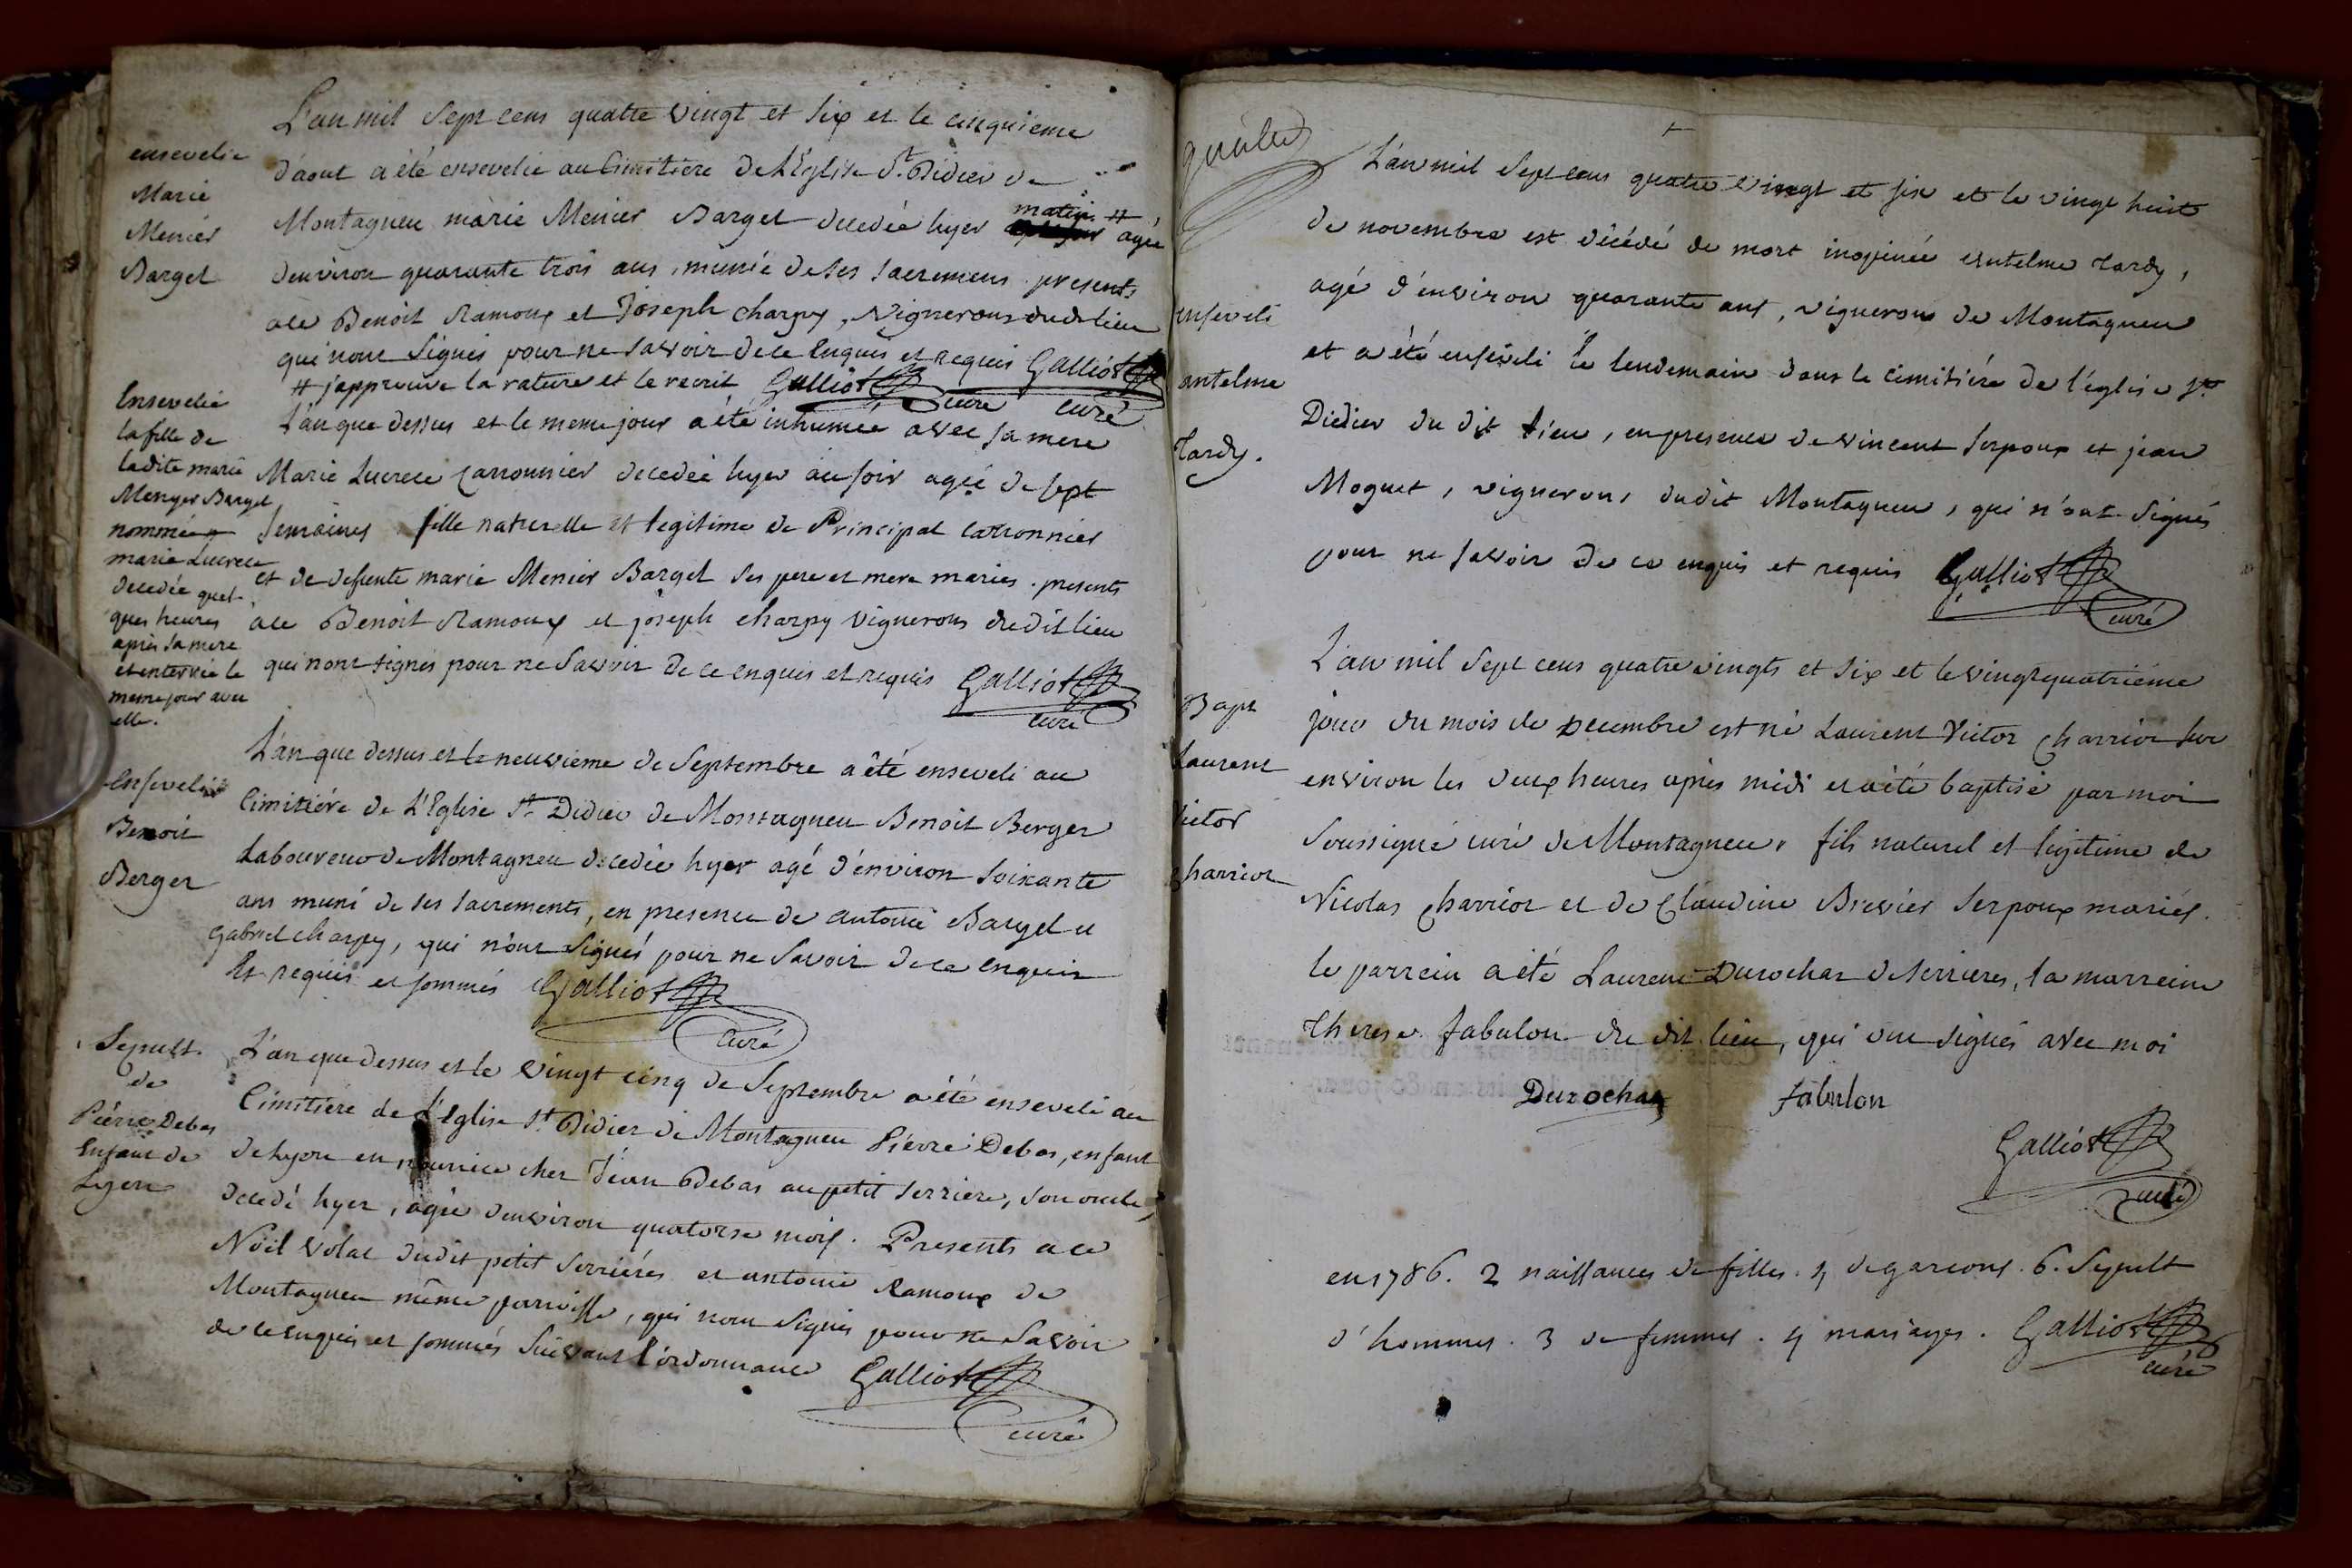 L'an mil sept cens quatre vingt et six et le cinquieme
ensevelie
d'aout a été ensevelie au Cimitiere de L'Eglise St. Didier de
Marie
Menier
Barget
Montagneu marie Menier Barget decedée hyer matin # agée
denviron quarante trois ans, munie de ses sacremens presents
a ce Benoit Ramoux et Joseph charpy, vignerons dudt lieu
qui n'ont signés pour ne savoir de ce enquis et requis Galliot
curé
# japprouve la rature et le recrit Galliot
curé
Ensevelie
la fille de
ladite marie
Menyer Barget
nommée
marie Lucrece
decedée quel-
ques heures
après sa mere
et enterrée le
meme jour avec
elle.
L'an que dessus et le meme jour a été inhumée avec sa mere
Marie Lucrece Carronnier decedée hyer au soir agée de sept
semaines fille naturelle et legitime de Principal Carronnier
et de defunte marie Menier Barget ses pere et mere mariés. presents
a ce Benoit Ramoux et joseph charpy vignerons dudit lieu
qui n'ont signés pour ne savoir de ce enquis et requis Galliot
curé
Enseveli
Benoit
Berger
L'an que dessus et le neuvieme de Septembre a été enseveli au
Cimitiére de L'Eglise St. Didier de Montagneu Benoit Berger
Laboureur de Montagneu decedée hyer agé d'environ soixante
ans muni de ses sacrements, en presence de antoine Barget et
Gabriel charpy, qui n'ont signés pour ne savoir de ce enquis
et requis et sommés Galliot
curé
Sepult.
de
Pierre Debas
Enfant de
Lyon
L'an que dessus et le vingt cinq de Septembre a été enseveli au
Cimitiere de l'Eglise St. Didier de Montagneu Pierre Debas, enfant
de Lyon en nourrice cher Jean Debas au petit serriere, son oncle,
decedé hyer, agée denviron quatorse mois. Presents a ce
Nöel volat dudit petit serriéres et antoine Ramoux de
Montagneu même parroisse, qui n'ont signés pour ne savoir
de ce enquis et sommés suivant l'ordonnance Galliot
curé
enseveli
antelme
Tardy.
L'an mil sept cens quatre vingt et six et le vingt huit
de novembre est décédé de mort inopinée antelme Tardy,
agé d'environ quarante ans, vigneron de Montagneu
et a été enséveli le lendemain dans le cimitiére de l'église St.
Didier du dit lieu, en presence de vincent serpoux et jean
Moguet, vignerons dudit Montagneu, qui n'ont signés
pour ne savoir de ce enquis et requis Galliot
curé
Bapt
Laurent
Victor
Charrior
L'an mil sept cens quatre vingts et six et le vingt quatriéme
jour du mois de Decembre est né Laurent Victor Charrior sur
environ les deux heures après midi et a été baptisé par moi
soussigné curé de Montagneu, fils naturel et legitime de
Nicolas Charrior et de Claudine Brevier serpoux mariés.
le parrein a été Laurent Durochas de serrieres, la marreine
Therese fabulon du dit lieu, qui ont signés avec moi
Durochas fabulon
Galliot
curé
en 1786. 2 naissances de filles. 4 de garcons. 6. Sepult
d'hommes. 3 de femmes. 4 mariages. Galliot
curé